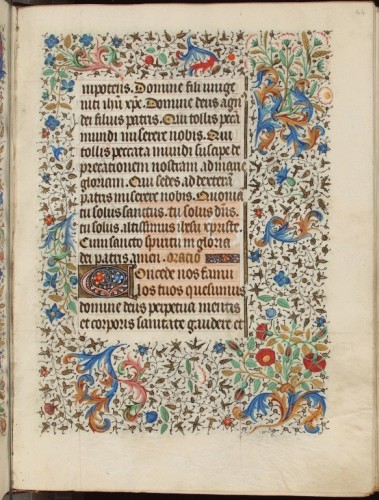 nipotens. Domine fili unige
niti ihu xpe. Domine deus agn
dei filius patris. Qui tollis pecca
mundi miserere nobis. Qui
tollis peccata mundi suscipe de
precationem nostram ad meque
gloriam. Qui sedes ad dexteram
patris miserere nobis. Quoniam
tu solus sanctus. tu solus dns.
tu solus altissimus ihesu xpriste.
Cum sancto spiritu in gloria
dei patris amen. oratio
Concede nos famu
los tuos quesumus
domine deus perpetua mentis
et corporis sanitate gaudere et